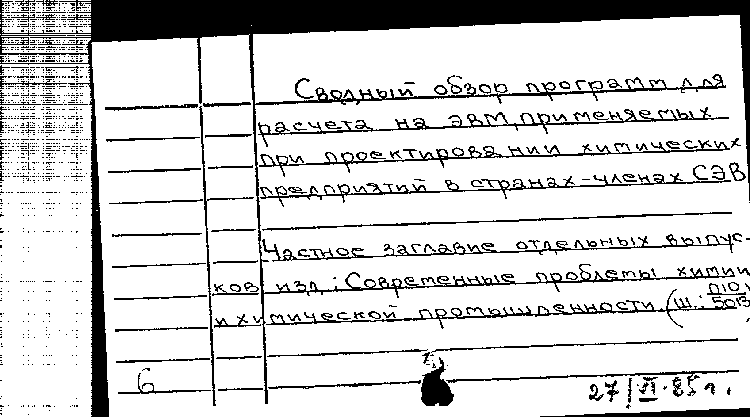 Сводный обзор программ для
расчета на ЭВМ, применяемых
при проектировании химических
предприятий в странах-членах СЭВ
Частное заглавие отдельных выпус-
ков изд.: Современные проблемы химии
и химической промышленности. (Ш.:
6
27/VI-85г.